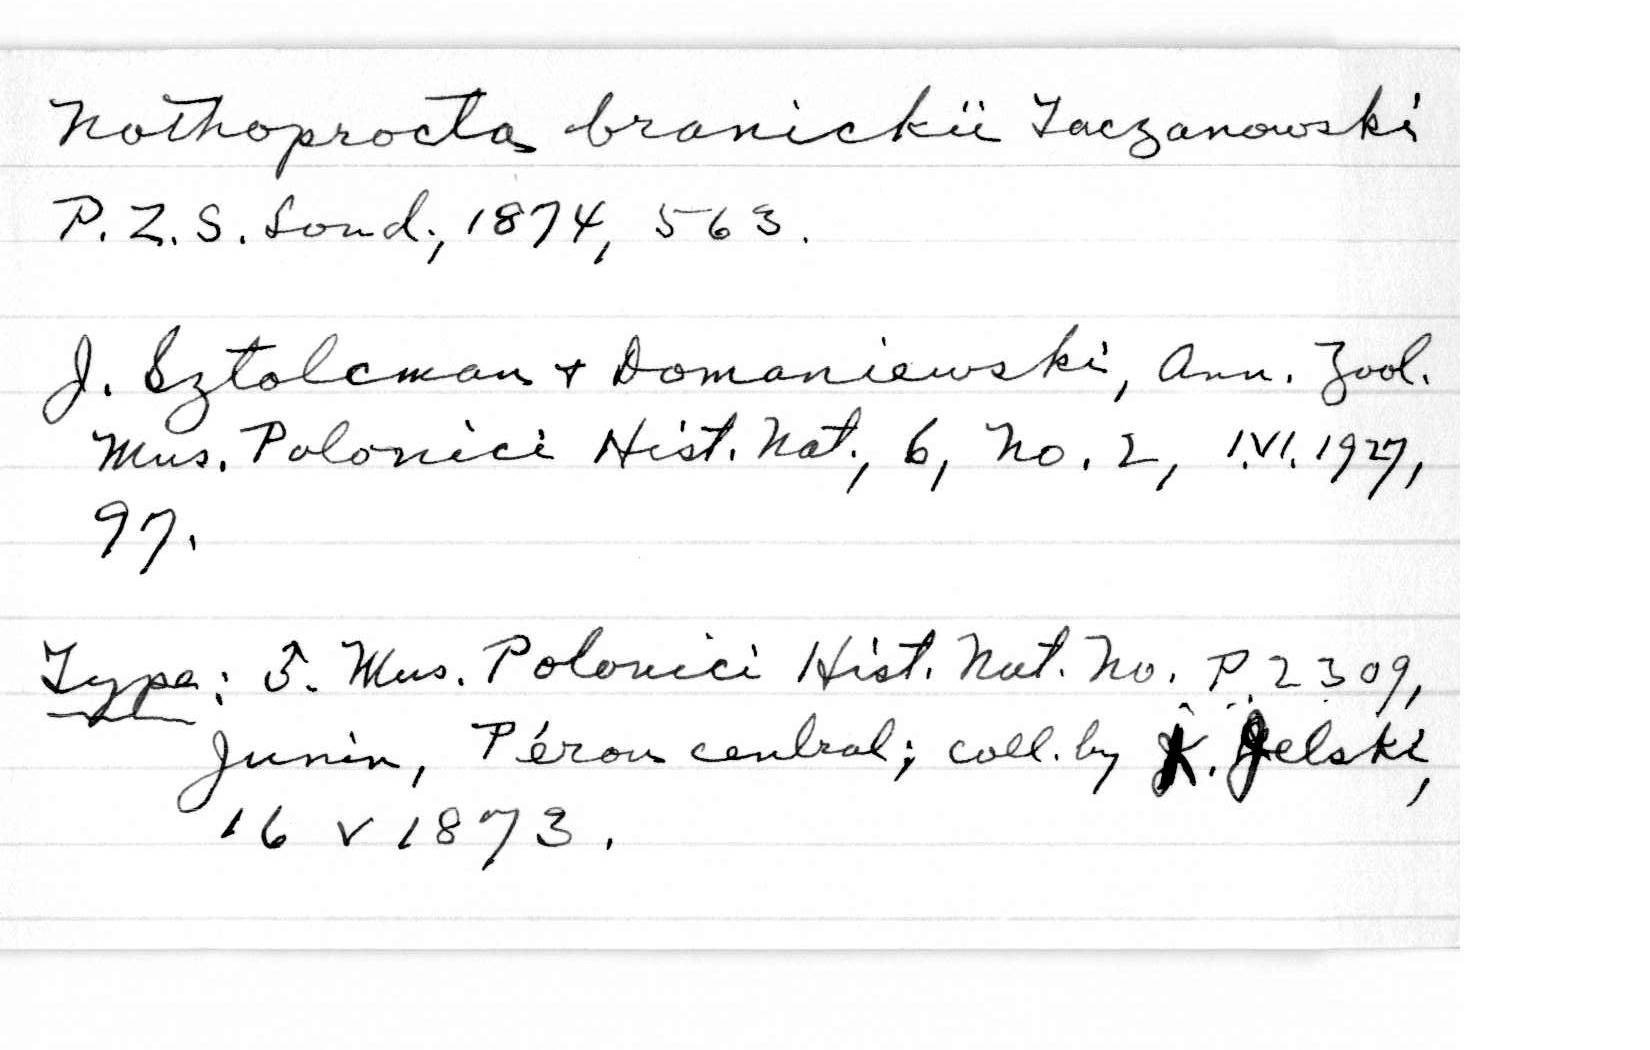 Nothoprocta branickii Taczanowski
P. Z. S. Lond., 1874, 563.
J. Sztolcman + Domaniewski, Ann. Zool.
Mus. Polonici Hist. Nat., 6, No. 2, 1.VI.1927,
97.
Type: ♂. Mus. Polonici Hist. Nat. No. P.2309,
Junin, Pérou central; coll. by K. Jelski,
16 V 1873.